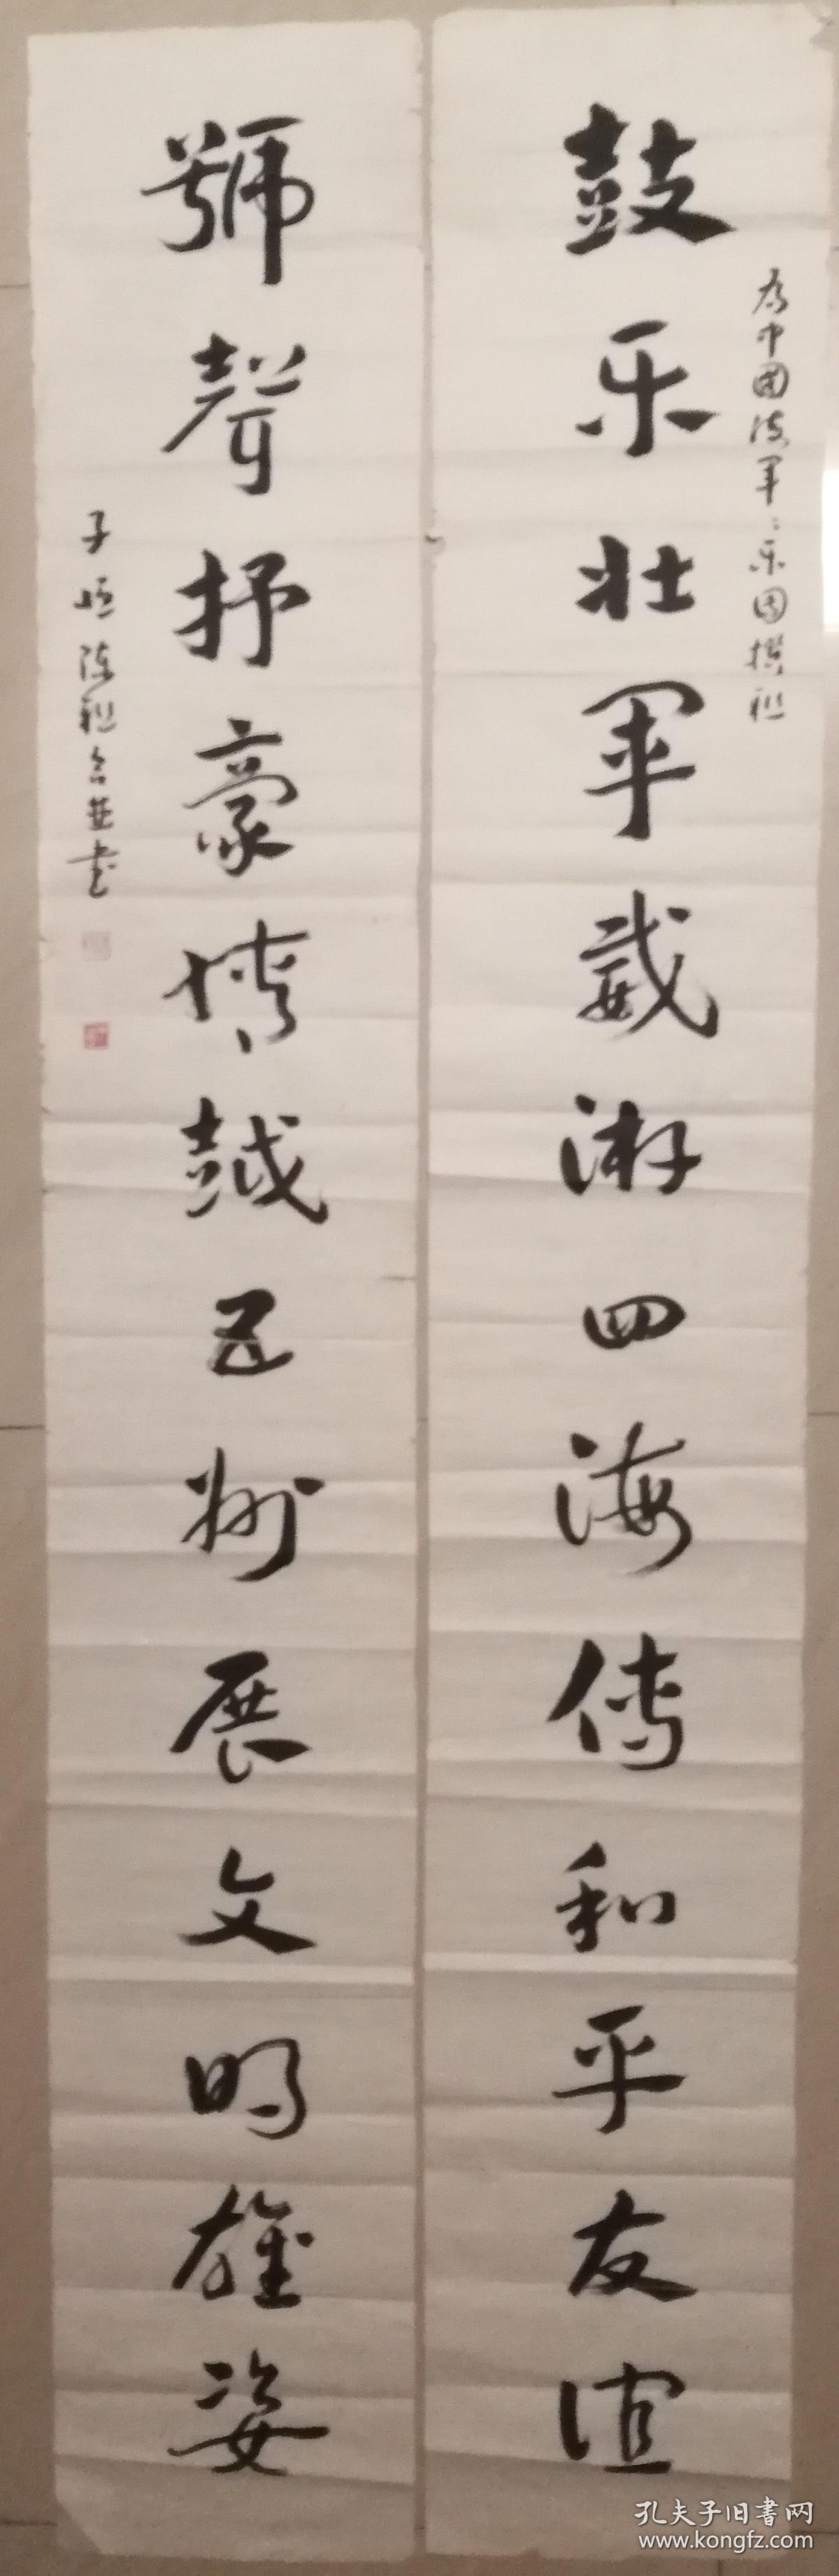 鼓乐壮军威游四海传和平友谊
为中国海军军乐团撰联
號聲抒豪情越五州展文明雄姿
子恒陈联合并书
孔夫子旧書网
www.kongfz.com